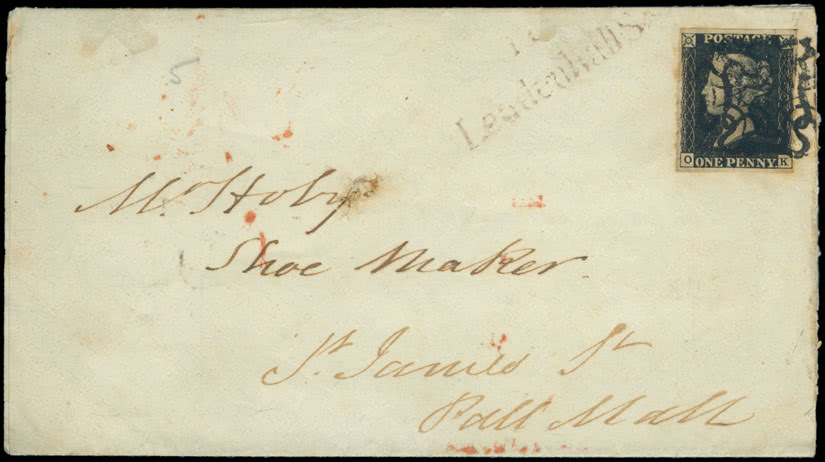 5
Leadenhall S
POSTAGE
O ONE PENNY K
Mr Hoby
Shoe Maker
St James St
Pall Mall